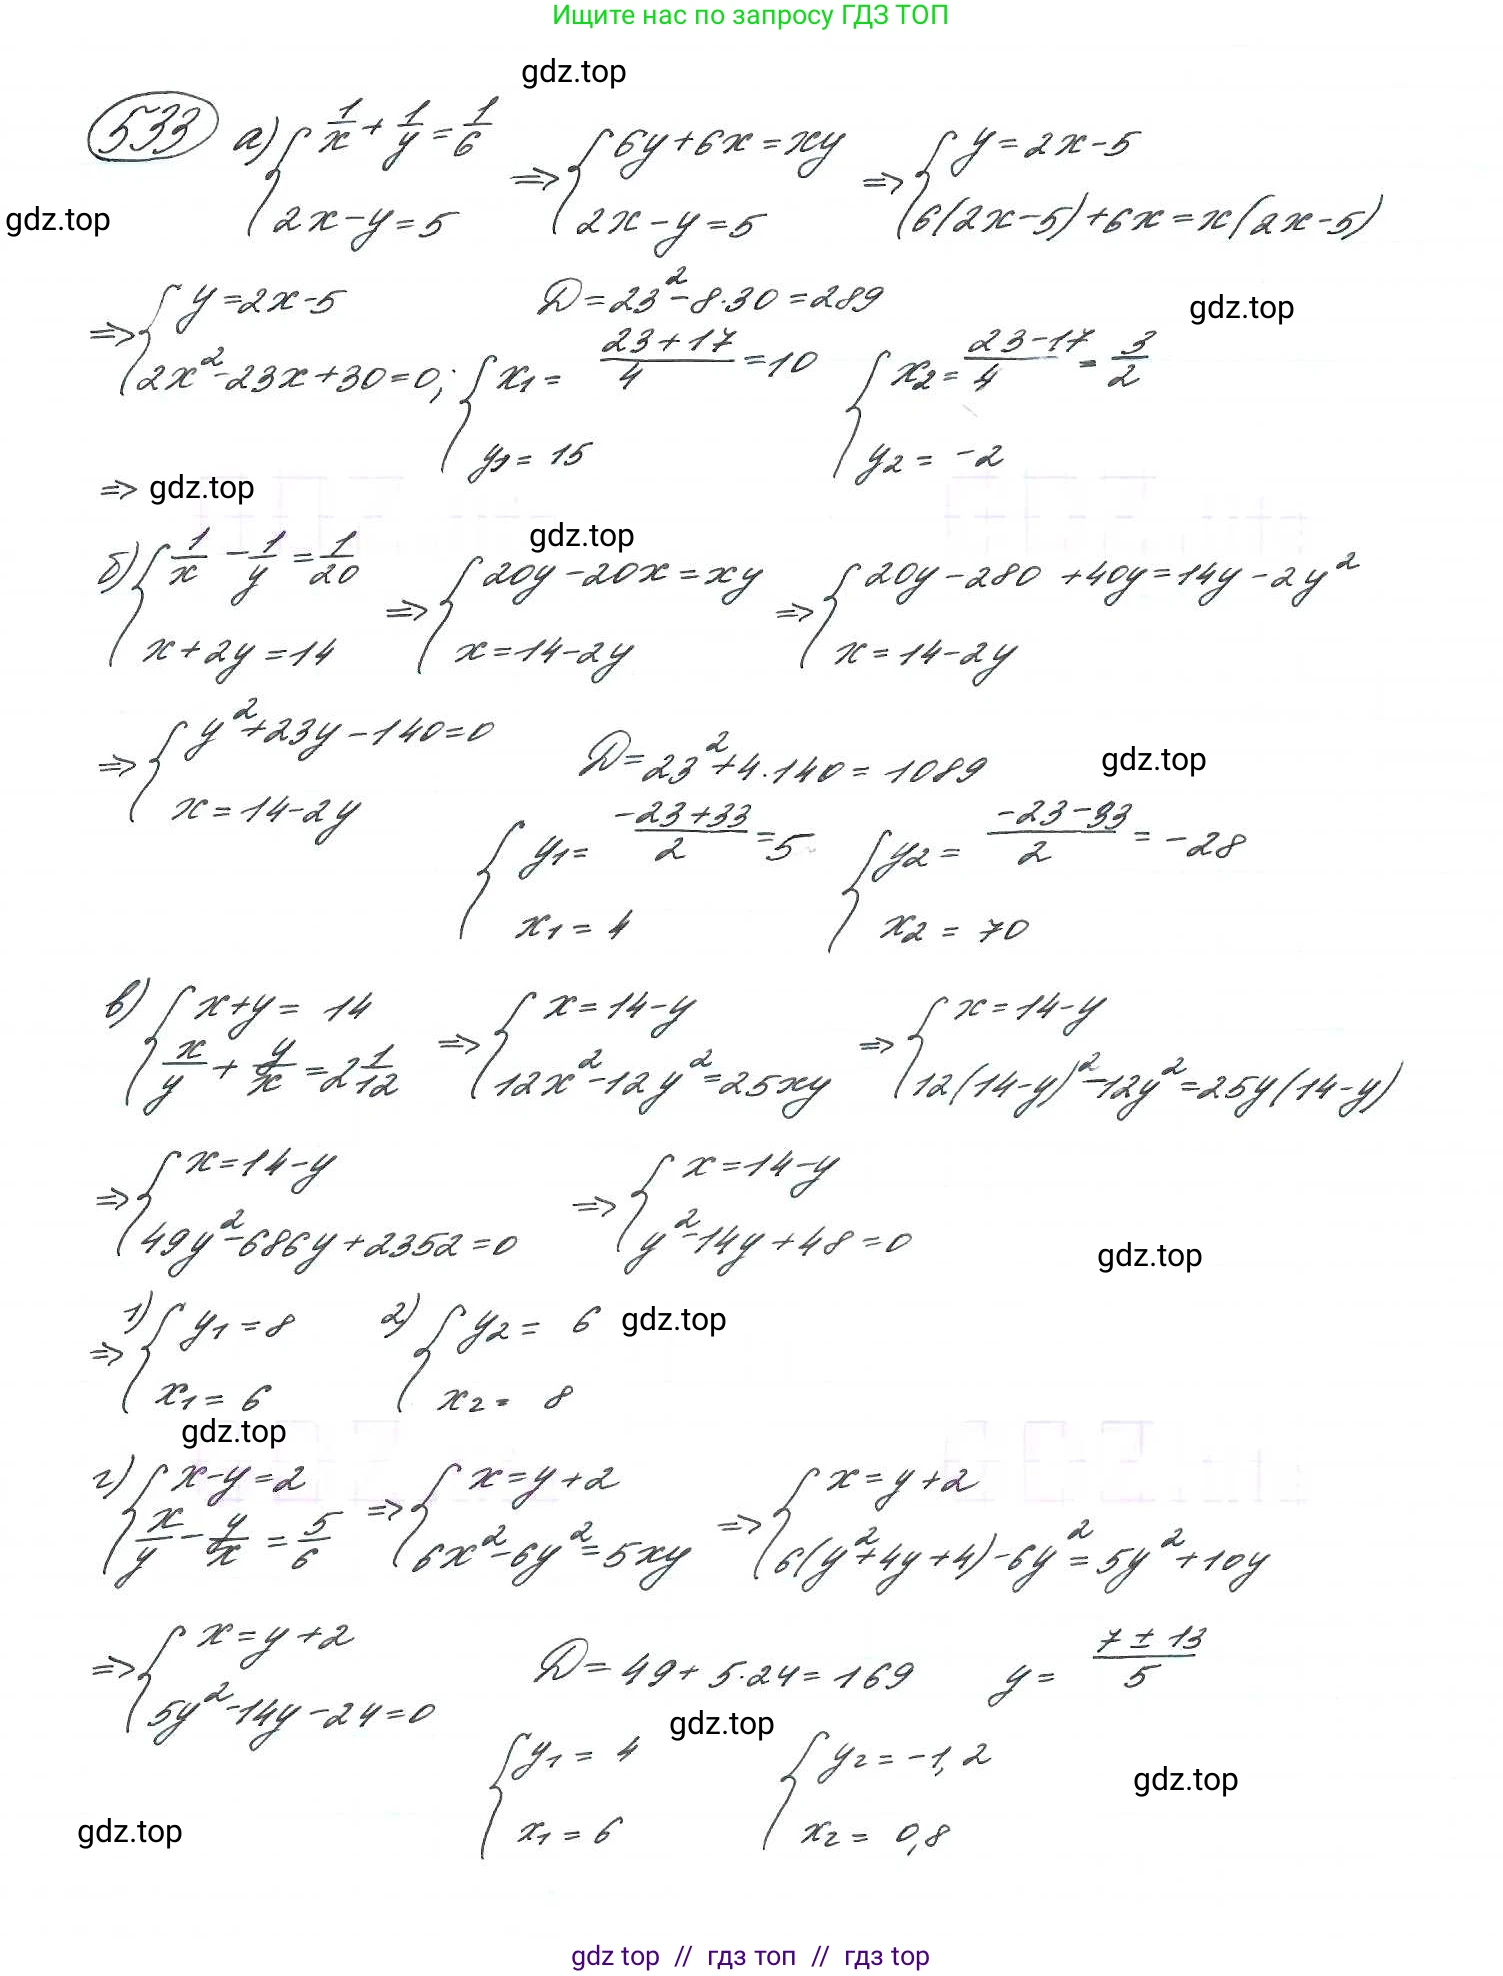 Ищите нас по запросу ГДЗ ТОП
gdz.top
533 а) { 1/x + 1/y = 1/6 ; 2x - y = 5 ⇒ { 6y + 6x = xy ; 2x - y = 5 ⇒ { y = 2x - 5 ; 6(2x - 5) + 6x = x(2x - 5)
gdz.top
⇒ { y = 2x - 5 ; 2x² - 23x + 30 = 0; D = 23² - 8·30 = 289
gdz.top
{ x₁ = (23 + 17)/4 = 10 ; y₁ = 15 { x₂ = (23 - 17)/4 = 3/2 ; y₂ = -2
⇒ gdz.top
gdz.top
б) { 1/x - 1/y = 1/20 ; x + 2y = 14 ⇒ { 20y - 20x = xy ; x = 14 - 2y ⇒ { 20y - 280 + 40y = 14y - 2y² ; x = 14 - 2y
⇒ { y² + 23y - 140 = 0 ; x = 14 - 2y D = 23² + 4·140 = 1089
gdz.top
{ y₁ = (-23 + 33)/2 = 5 ; x₁ = 4 { y₂ = (-23 - 33)/2 = -28 ; x₂ = 70
в) { x + y = 14 ; x/y + y/x = 2 1/12 ⇒ { x = 14 - y ; 12x² - 12y² = 25xy ⇒ { x = 14 - y ; 12(14 - y)² - 12y² = 25y(14 - y)
⇒ { x = 14 - y ; 49y² - 686y + 2352 = 0 ⇒ { x = 14 - y ; y² - 14y + 48 = 0
gdz.top
⇒ 1) { y₁ = 8 ; x₁ = 6 2) { y₂ = 6 ; x₂ = 8
gdz.top
gdz.top
г) { x - y = 2 ; x/y - y/x = 5/6 ⇒ { x = y + 2 ; 6x² - 6y² = 5xy ⇒ { x = y + 2 ; 6(y² + 4y + 4) - 6y² = 5y² + 10y
⇒ { x = y + 2 ; 5y² - 14y - 24 = 0 D = 49 + 5·24 = 169 y = (7 ± 13)/5
gdz.top
{ y₁ = 4 ; x₁ = 6 { y₂ = -1,2 ; x₂ = 0,8
gdz.top
gdz.top
gdz top // гдз топ // гдз top